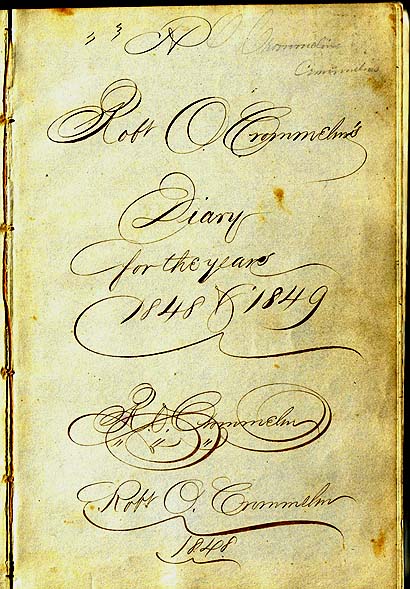 " 3 A O Crommelin
Crommelin
Robt O. Crommelin's
Diary
for the years
1848 & 1849
R. O. Crommelin
" " "
Robt O. Crommelin
1848.